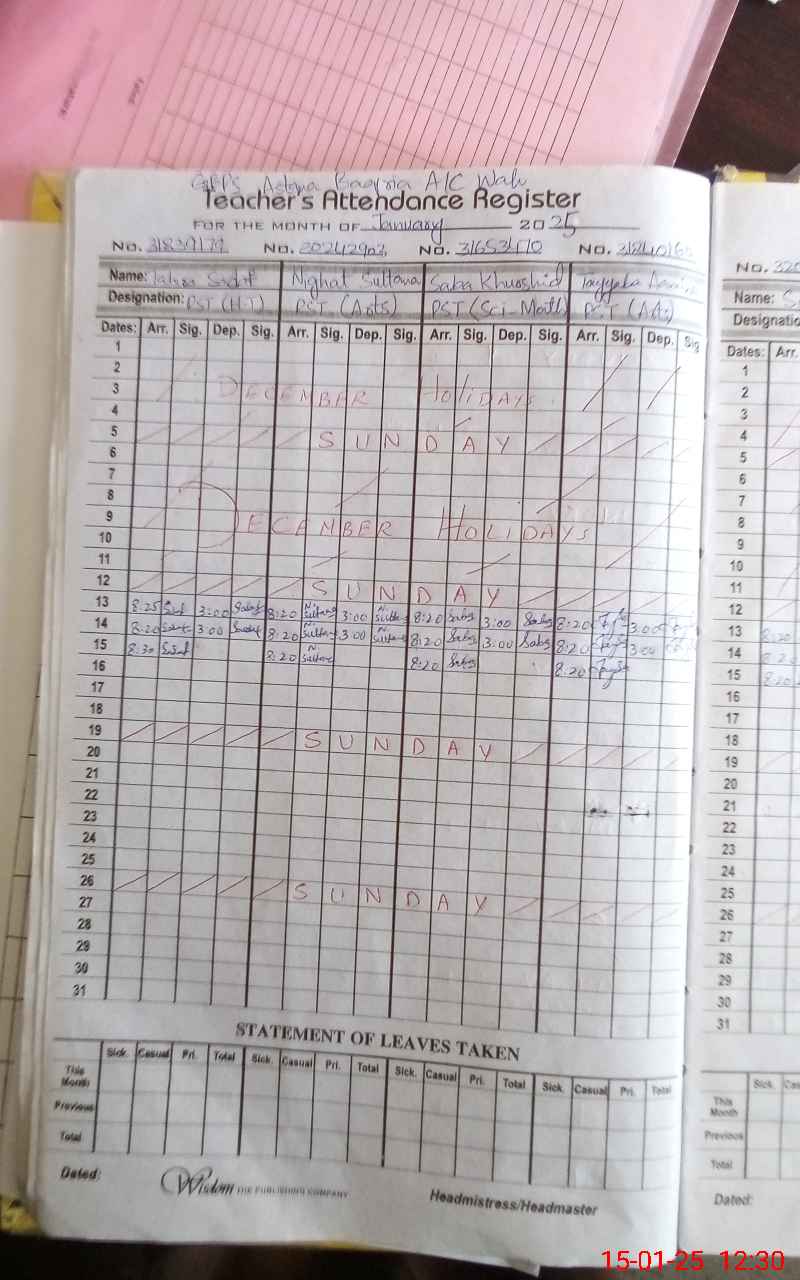 GGPS Astana Bagria A/C Wali
Teacher's Attendance Register
FOR THE MONTH OF January 2025
No. No. 30242903 No. No.
Name: Nighat Sultana Saba Khurshid Tayyaba
Designation: PST (H.T) PST (Arts) PST (Sci-Math) PST (Arts)
Dates: Arr. Sig. Dep. Sig. Arr. Sig. Dep. Sig. Arr. Sig. Dep. Sig. Arr. Sig. Dep. Sig
1
2
3 DECEMBER Holidays
4
5 SUNDAY
6
7
8
9 DECEMBER Holidays
10
11
12 SUNDAY
13 8:25 3:00 8:20 N Sultana 3:00 N Sultana 8:20 Saba 3:00 Saba 8:20 3:00
14 8:20 3:00 8:20 N Sultana 3:00 N Sultana 8:20 Saba 3:00 Saba 8:20 3:00
15 8:30 8:20 N Sultana 8:20 Saba 8:20
16
17
18
19 SUNDAY
20
21
22
23
24
25
26 SUNDAY
27
28
29
30
31
STATEMENT OF LEAVES TAKEN
Sick. Casual Pri. Total Sick. Casual Pri. Total Sick. Casual Pri. Total Sick. Casual Pri. Total
This Month
Previous
Total
Dated:
Wisdom THE PUBLISHING COMPANY
Headmistress/Headmaster
No. 320
Name:
Designatio
Dates: Arr.
1
2
3
4
5
6
7
8
9
10
11
12
13 8:20
14 8:20
15 8:20
16
17
18
19
20
21
22
23
24
25
26
27
28
29
30
31
Sick. Cas
This Month
Previous
Total
Dated:
15-01-25 12:30